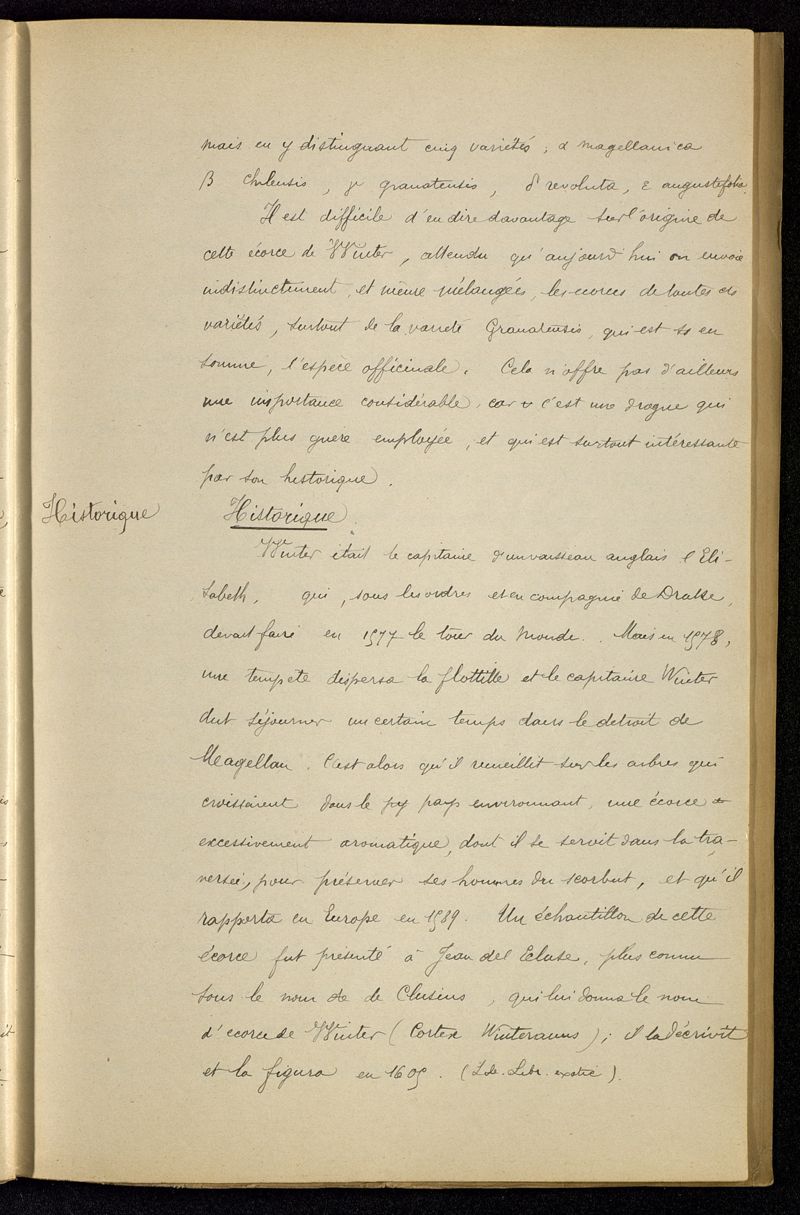 mais en y distinguant cinq variétés ; α magellanica
β chilensis, γ granatensis, δ revoluta, ε angustifolia.
Il est difficile d'en dire davantage sur l'origine de
cette écorce de Winter, attendu qu'aujourd'hui on envoie
indistinctement, et même mélangées, les écorces de toutes ces
variétés, surtout de la varieté Granatensis, qui est en
somme, l'espèce officinale. Cela n'offre pas d'ailleurs
une importance considérable, car c'est une drogue qui
n'est plus guère employée, et qui est surtout intéressante
par son historique.
Historique
Historique
Winter était le capitaine d'un vaisseau anglais l'Eli-
sabeth, qui, sous les ordres et en compagnie de Drake,
devait faire en 1577 le tour du Monde. Mais en 1578,
une tempete dispersa la flottille et le capitaine Winter
dut séjourner un certain temps dans le detroit de
Magellan. C'est alors qu'il recueillit sur les arbres qui
croissaient dans le py pays environnant, une écorce
excessivement aromatique, dont il se servit dans la tra-
versée, pour préserver ses hommes du scorbut, et qu'il
rapporta en Europe en 1589. Un échantillon de cette
écorce fut présenté à Jean del Ecluse, plus connu
sous le nom de de Clusius, qui lui donna le nom
d'ecorce de Winter (Cortex Winteranus) ; il la décrivit
et la figura en 1605. (Libr. exotic).